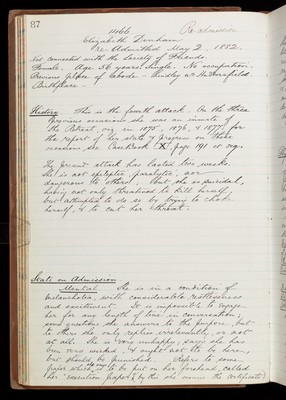 87
1466 Re-admission
Elizabeth
Re-Admitted May 2. 1882.
Not connected with the Society of Friends
Female. Age 56 years. Single. No occupation.
Previous place of abode - Hindley nr Huddersfield.
Birthplace -
History This is the fourth attack. On the three
previous occasions she was an inmate of
the Retreat, viz in 1875, 1876, & 1877; for
the report of her state & progress on these
occasions see Case Book page 191 et seq.
The present attack has lasted two weeks.
She is not epileptic, paralytic, nor
dangerous to others, but she is suicidal,
having not only threatened to kill herself,
but attempted to do so by trying to choke
herself, & to cut her throat.
State on Admission
Mental She is in a condition of
melancholia, with considerable restlessness
and excitement. It is impossible to engage
her for any length of time in conversation;
some questions she answers to the purpose, but
to others she only replies irrelevantly, or not
at all. She is very unhappy, says she has
been very wicked, & ought not to be here,
but should be punished. Refers to some
paper which is to be put on her forehead, called
her "execution paper" (by this she means the certificate)